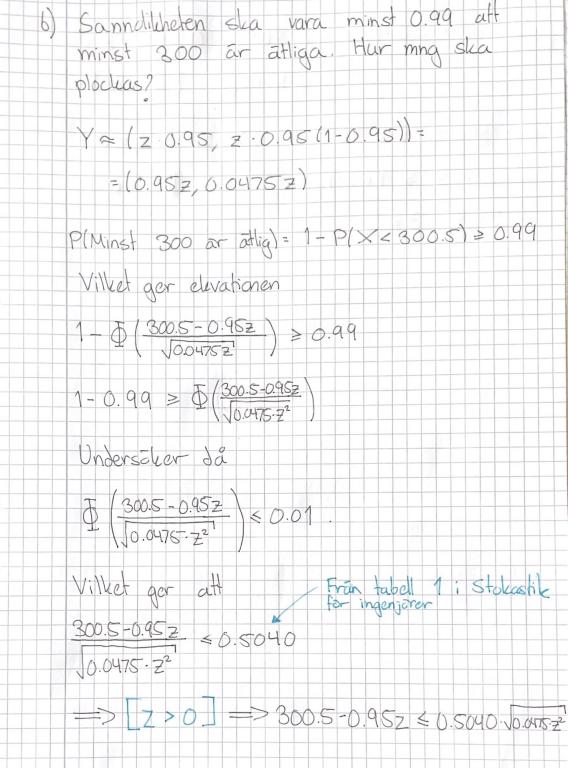 b) Sanndikheten ska vara minst 0.99 att
minst 300 är ätliga. Hur mng ska
plockas?
Y ≈ (z 0.95, z · 0.95 (1-0.95)) =
= (0.95z, 0.0475z)
P(Minst 300 är ätlig) = 1 - P(X < 300.5) ≥ 0.99
Vilket ger ekvationen
1 - Φ( (300.5 - 0.95z) / √(0.0475z) ) ≥ 0.99
1 - 0.99 ≥ Φ( (300.5 - 0.95z) / √(0.0475·z²) )
Undersöker då
Φ( (300.5 - 0.95z) / √(0.0475·z²) ) ≤ 0.01.
Vilket ger att
Från tabell 1 i Stokastik
för ingenjörer
(300.5 - 0.95z) / √(0.0475·z²) ≤ 0.5040
⟹ [z > 0] ⟹ 300.5 - 0.95z ≤ 0.5040·√(0.0475·z²)